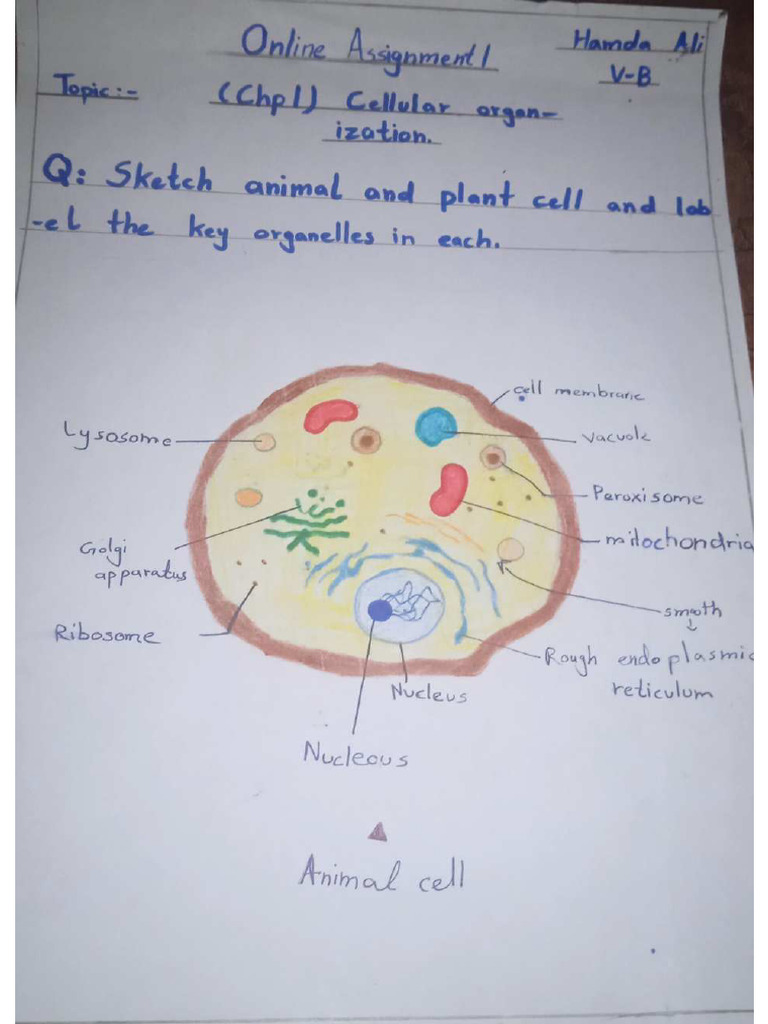 Online Assignment 1
Hamda Ali
V-B
Topic:-
(Chp 1) Cellular organ-
ization.
Q: Sketch animal and plant cell and lab
-el the key organelles in each.
cell membrane
Lysosome
vacuole
Peroxisome
mitochondria
Golgi
apparatus
smooth
Ribosome
Rough endoplasmic
reticulum
Nucleus
Nucleous
Animal cell